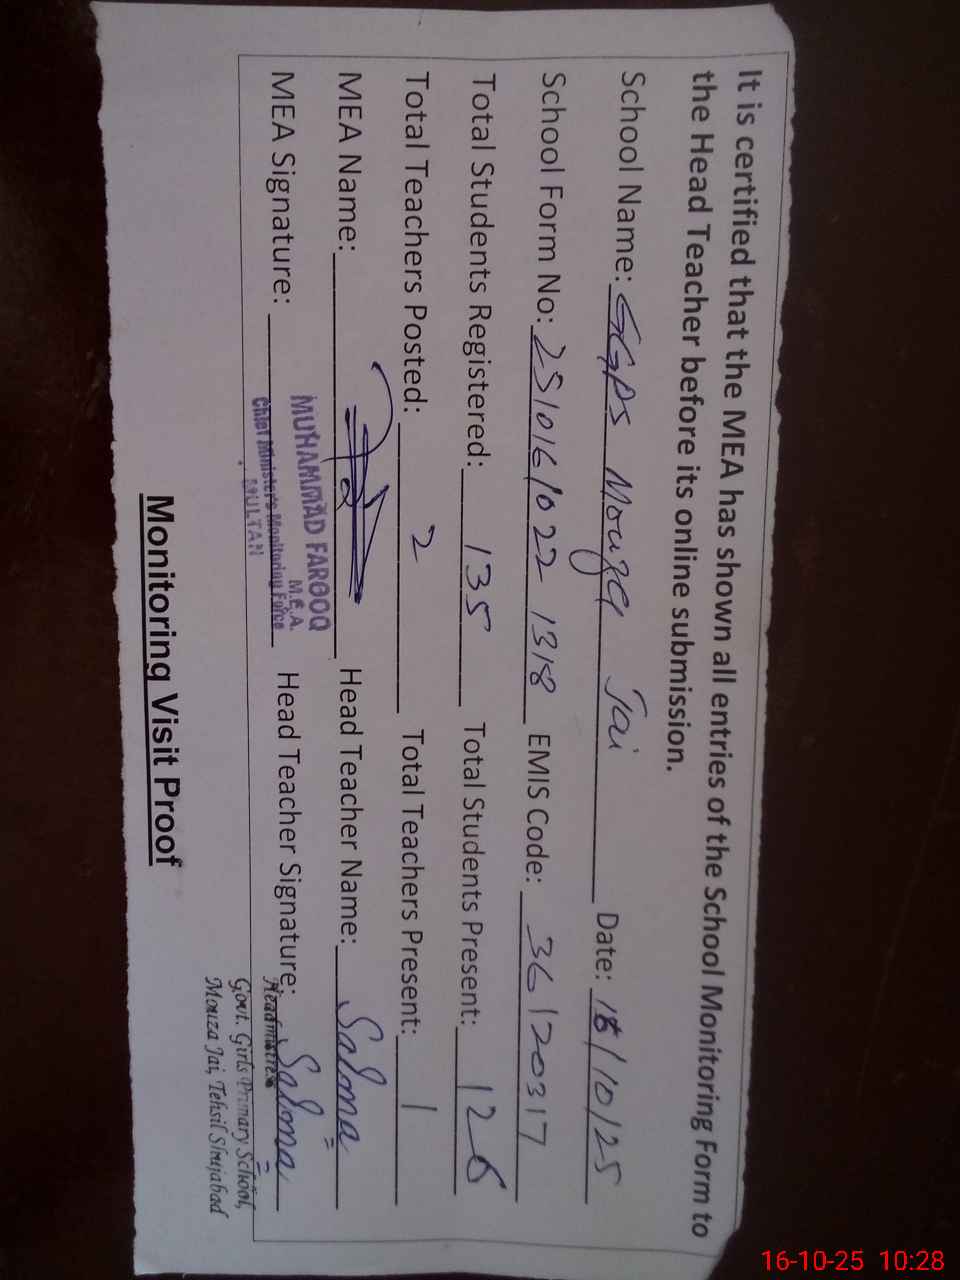 It is certified that the MEA has shown all entries of the School Monitoring Form to
the Head Teacher before its online submission.
School Name: GGPS Mouza Jai Date: 16/10/25
School Form No: 2510161022 1318 EMIS Code: 36120317
Total Students Registered: 135 Total Students Present: 126
Total Teachers Posted: 2 Total Teachers Present: 1
MEA Name: Head Teacher Name: Salma
MUHAMMAD FAROOQ
M.E.A.
Chief Minister's Monitoring Force
MULTAN
MEA Signature: Head Teacher Signature: Salma
Headmistress
Govt. Girls Primary School,
Mouza Jai, Tehsil Shujabad
Monitoring Visit Proof
16-10-25 10:28